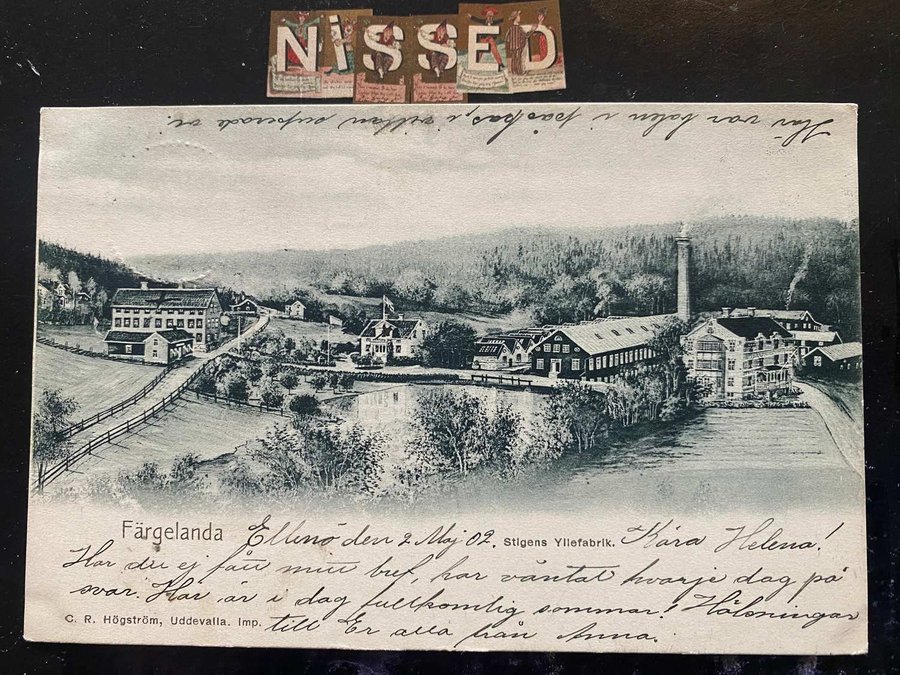 NiSSED
Här var balen i påskas, i villan superade vi.
Färgelanda Ellenö den 2 Maj 02. Stigens Yllefabrik. Kära Helena!
Har du ej fått mitt bref, har väntat hvarje dag på
svar. Här är i dag fullkomlig sommar! Hälsningar
C. R. Högström, Uddevalla. Imp. till Er alla från Anna.